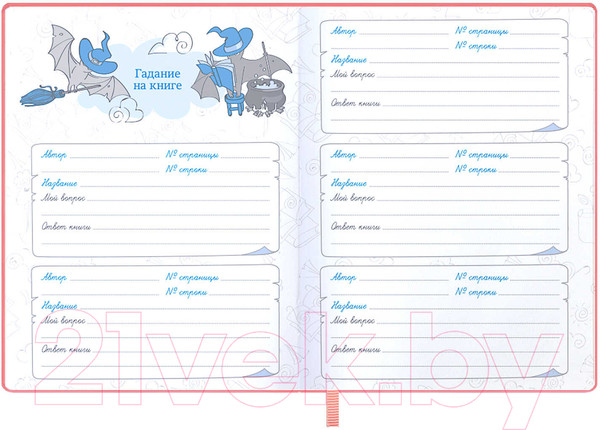 Гадание
на книге
Автор № страницы
№ строки
Название
Мой вопрос
Ответ книги
Автор № страницы
№ строки
Название
Мой вопрос
Ответ книги
Автор № страницы
№ строки
Название
Мой вопрос
Ответ книги
Автор № страницы
№ строки
Название
Мой вопрос
Ответ книги
Автор № страницы
№ строки
Название
Мой вопрос
Ответ книги
21vek.by